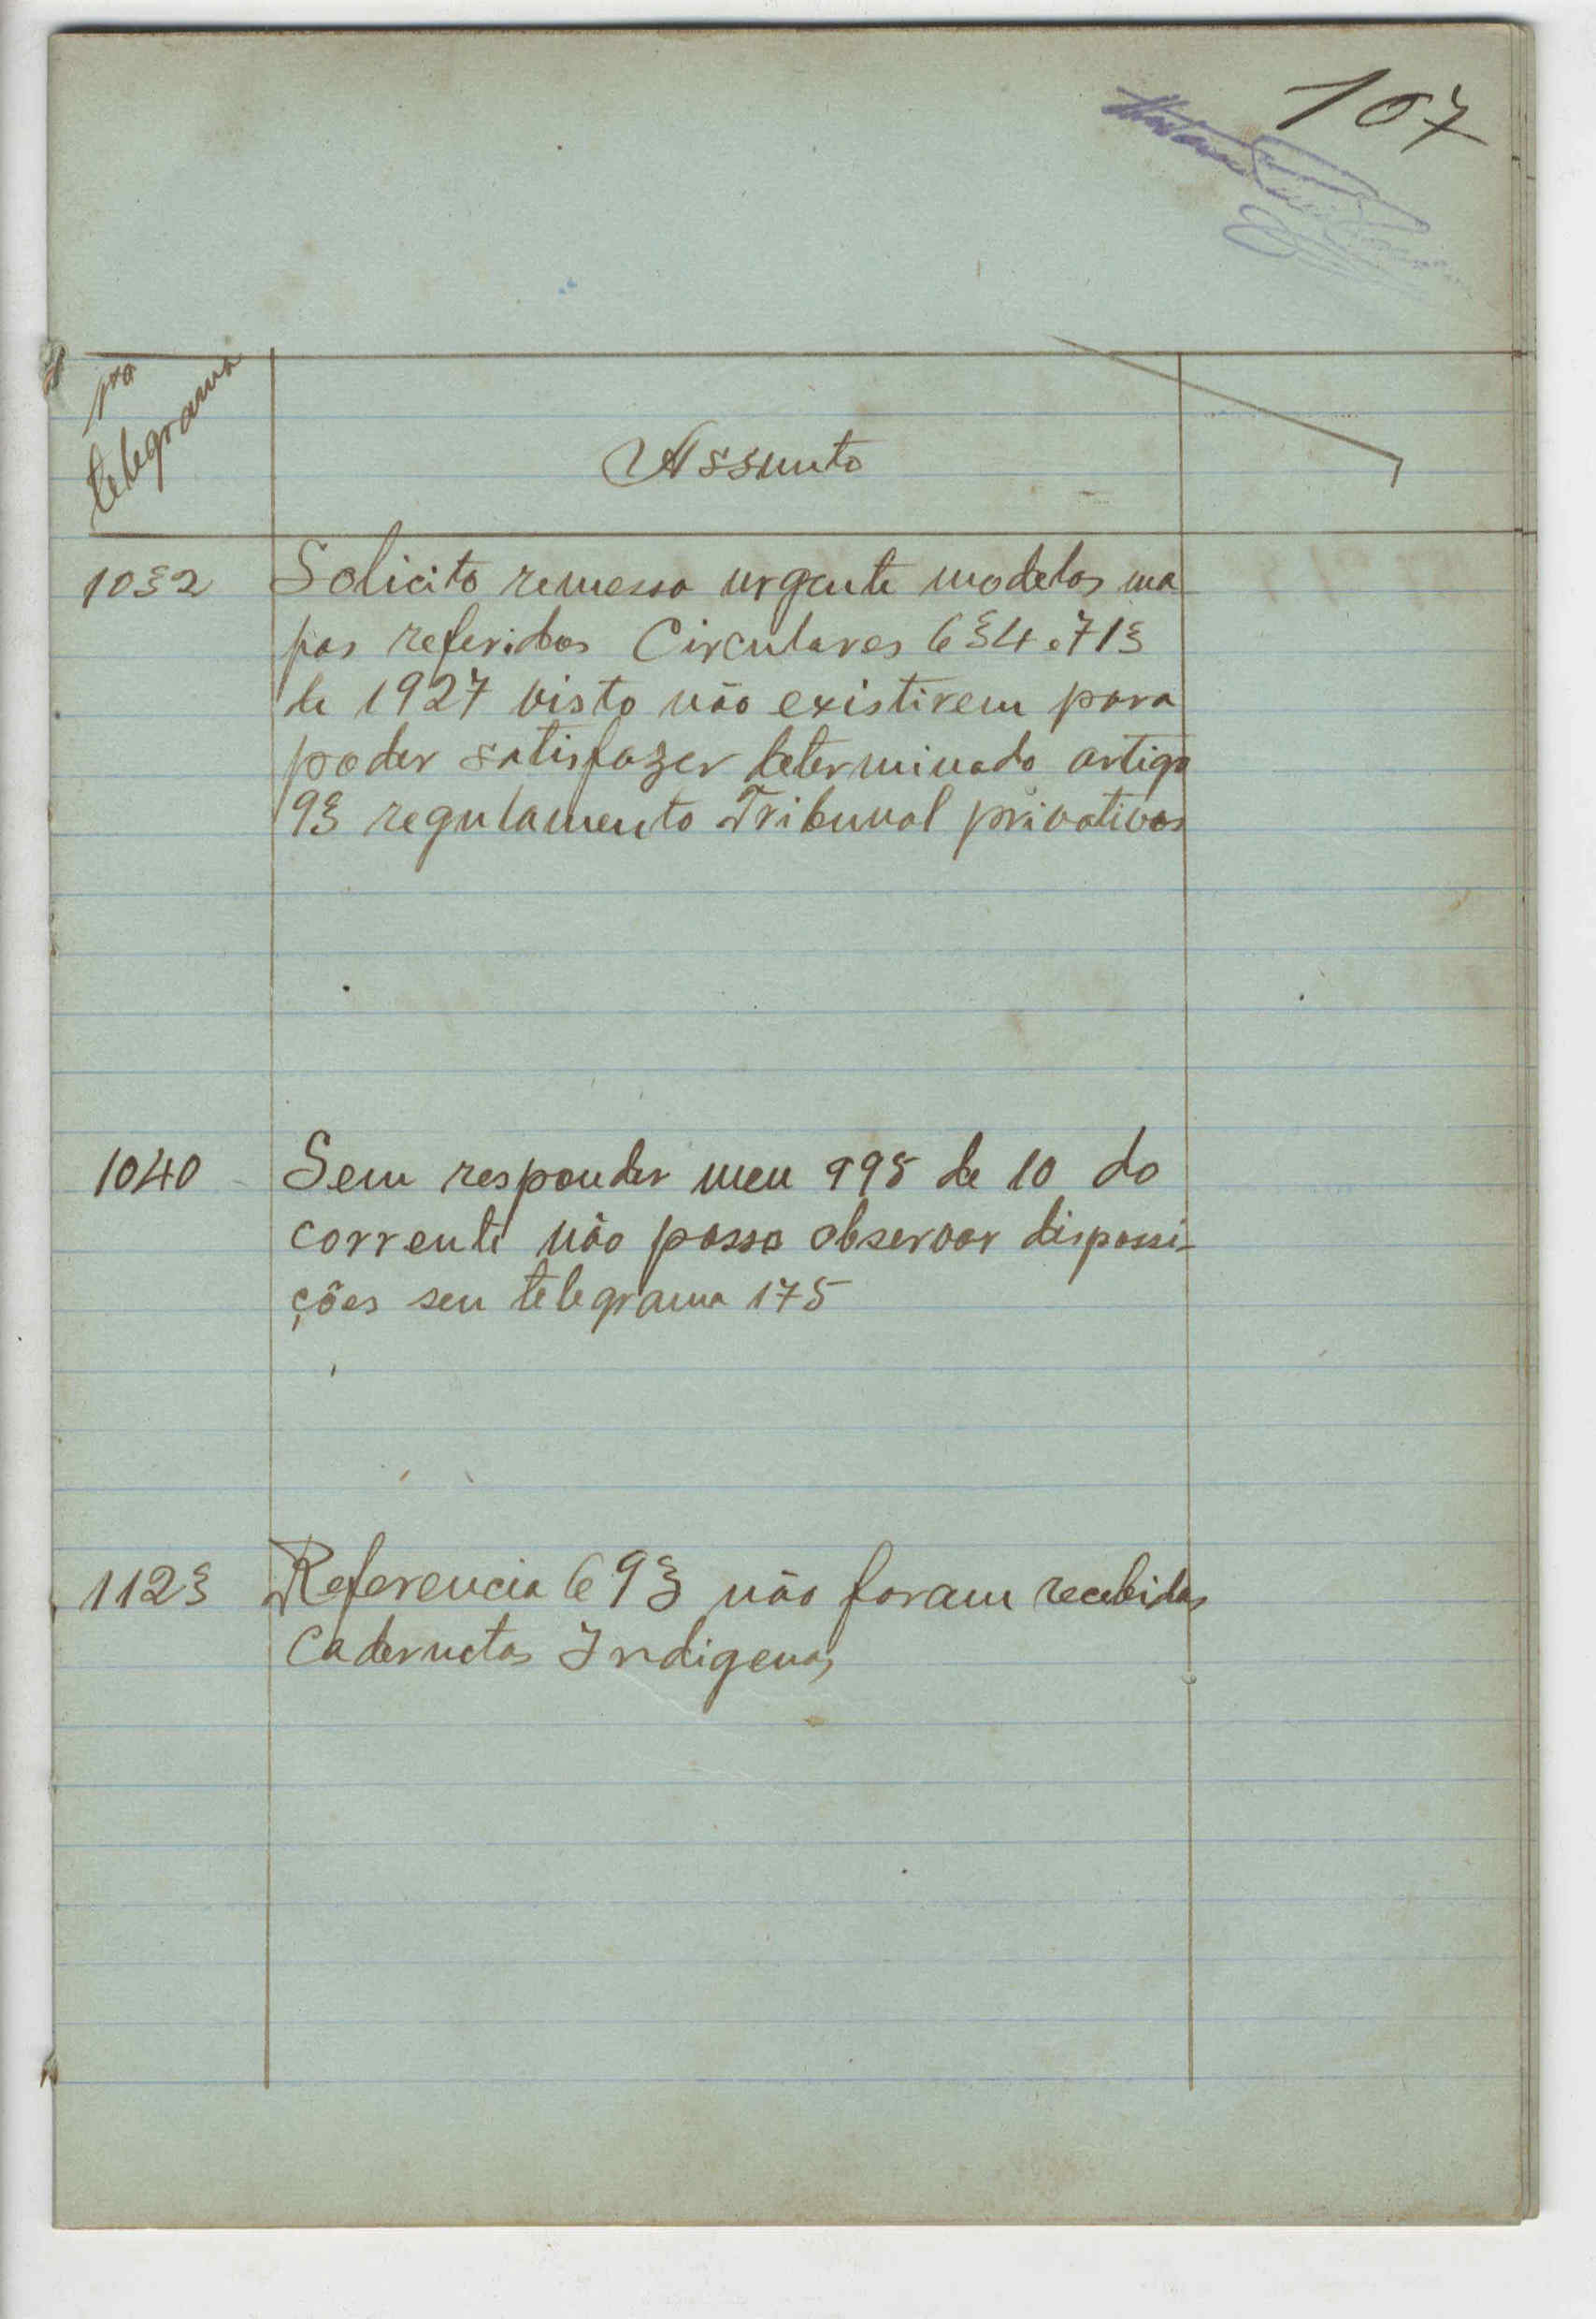 107
Nº telegrama
Assunto
1032 Solicito remessa urgente modelos ma
pas referidos Circulares 634 e 713
de 1927 visto não existirem para
poder satisfazer determinado artigo
93 regulamento Tribunal privativos
1040 Sem responder meu 995 de 10 do
corrente não posso observar dispossi-
ções seu telegrama 175
1123 Referencia 693 não foram recebidas
Cadernetas Indigenas